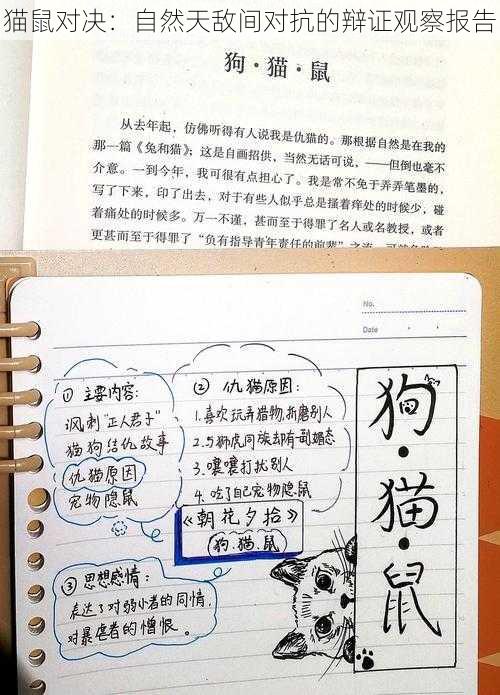 猫鼠对决：自然天敌间对抗的辩证观察报告
狗·猫·鼠
从去年起，仿佛听得有人说我是仇猫的。那根据自然是在我的
那一篇《兔和猫》；这是自画招供，当然无话可说，——但倒也毫不
介意。一到今年，我可很有点担心了。我是常不免于弄弄笔墨的，
写了下来，印了出去，对于有些人似乎总是搔着痒处的时候少，碰
着痛处的时候多。万一不谨，甚而至于得罪了名人或名教授，或者
更甚而至于得罪了“负有指导青年责任的前辈”之流
No.
Date
① 主要内容：
讽刺“正人君子”
猫狗结仇故事
仇猫原因
宠物隐鼠
② 仇猫原因：
1.喜欢玩弄猎物，折磨别人
2.与狮虎同族却有一副媚态
3.嚷嚷打扰别人
4.吃了自己宠物隐鼠
《朝花夕拾》
狗.猫.鼠
狗·猫·鼠
③ 思想感情：
表达了对弱小者的同情，
对暴虐者的憎恨。